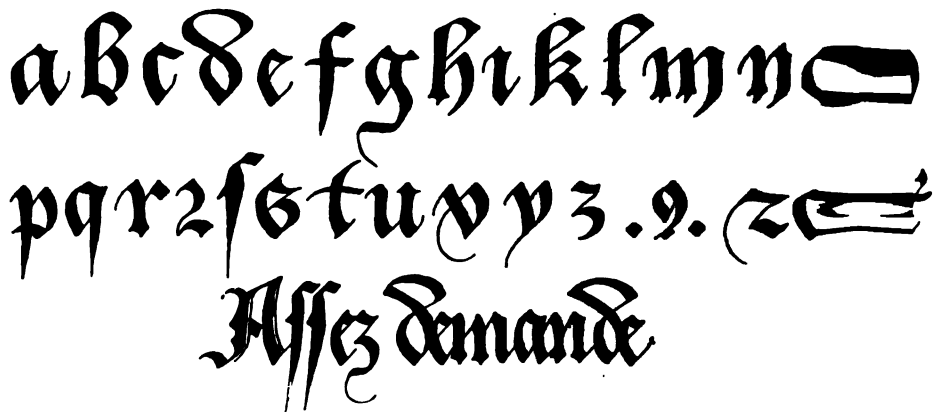 abcdefghiklmno
pqrꝛſstuxyz.9.ꝛc
Aſſez demande